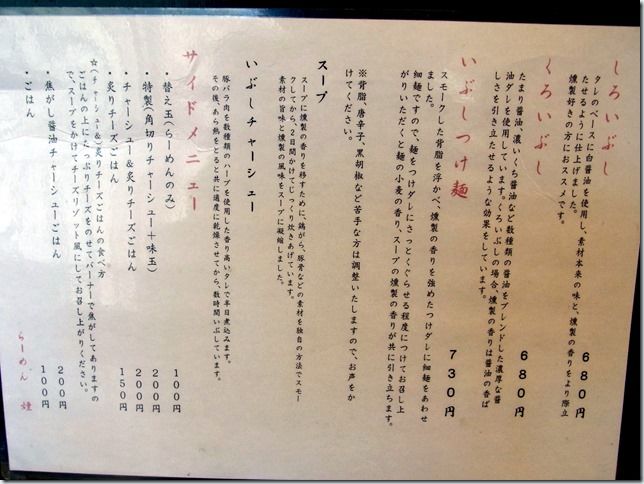 しろいぶし　６８０円
タレのベースに白醤油を使用し、素材本来の味と、燻製の香りをより際立
たせるように仕上げました。
燻製好きの方におススメです。
くろいぶし　６８０円
たまり醤油、濃いくち醤油など数種類の醤油をブレンドした濃厚な醤
油ダレを使用しています。くろいぶしの場合、燻製の香りは醤油の香ば
しさを引き立たせるような効果をしています。
いぶしつけ麺　７３０円
スモークした背脂を浮かべ、燻製の香りを強めたつけダレに細麺をあわせ
ました。
細麺ですので、麺をつけダレにさっとくぐらせる程度につけてお召し上
がりいただくと麺の小麦の香り、スープの燻製の香りが共に引き立ちます。
※背脂、唐辛子、黒胡椒など苦手な方は調整いたしますので、お声をか
けてください。
スープ
スープに燻製の香りを移すために、鶏がら、豚骨などの素材を独自の方法でスモー
クしてから、２日間かけてじっくり炊きあげています。
素材の旨味と燻製の風味をスープに凝縮しました。
いぶしチャーシュー
豚バラ肉を数種類のハーブを使用した香り高いタレで半日煮込みます。
その後、あら熱をとると共に適度に乾燥させてから、数時間いぶしています。
サイドメニュー
・替え玉（らーめんのみ）　１００円
・特製（角切りチャーシュー＋味玉）　２００円
・チャーシュー＆炙りチーズごはん　２００円
・炙りチーズごはん　１５０円
☆（チャーシュー＆）炙りチーズごはんの食べ方
ごはんの上にたっぷりチーズをのせてバーナーで焦がしてありますの
で、スープをかけてチーズリゾット風にしてお召し上がりください。
・焦がし醤油チャーシューごはん　２００円
・ごはん　１００円
らーめん